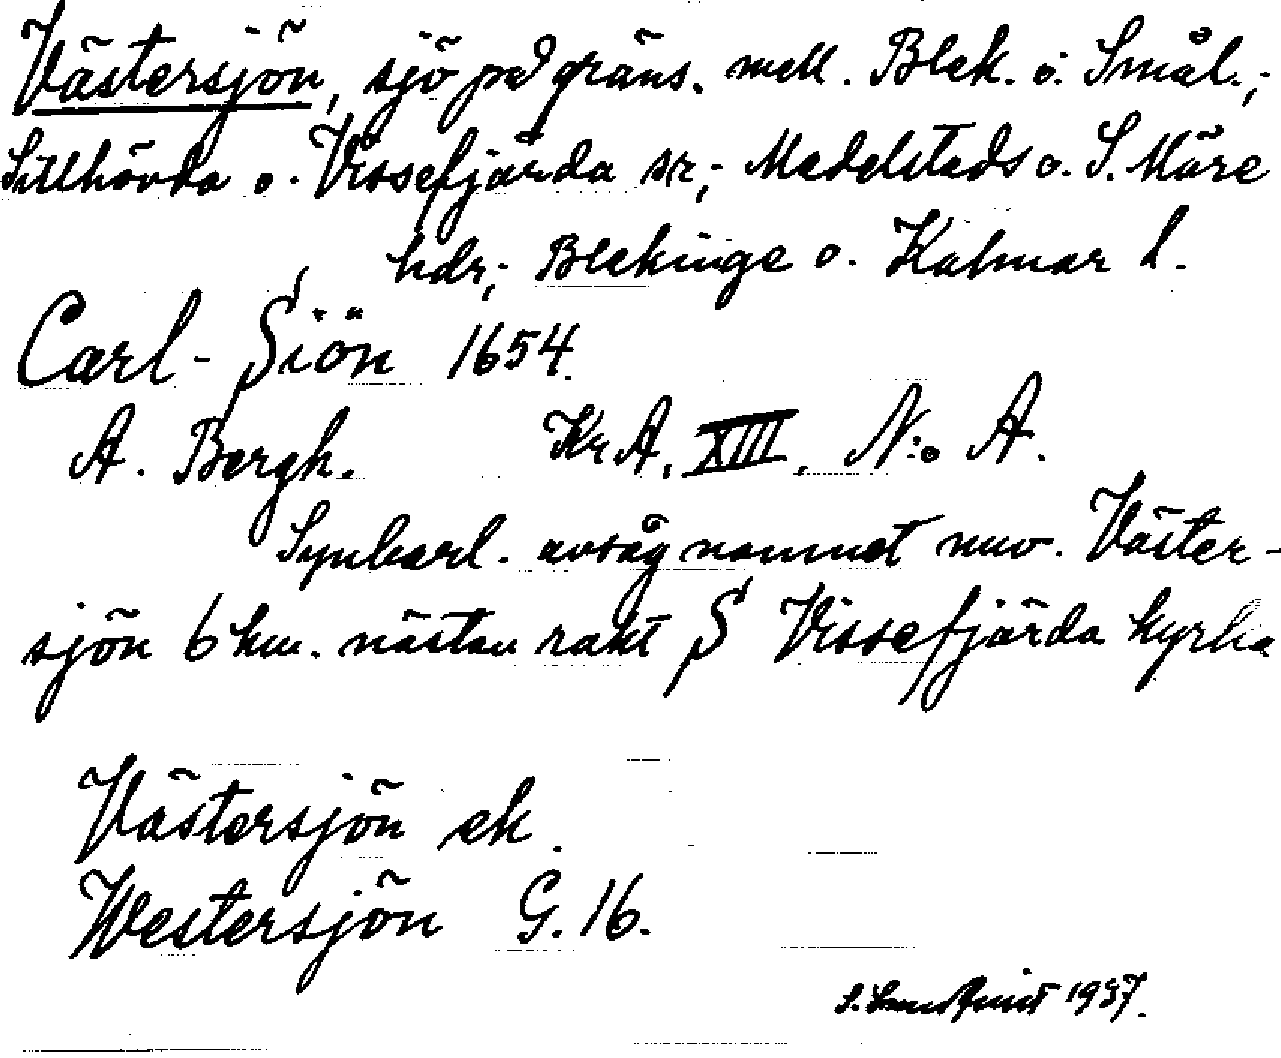 Västersjön, sjö på gräns. mell. Blek. o. Smål.;
Sillhövda o. Vissefjärda snr; Medelstads o. S. Möre
hdr; Blekinge o. Kalmar l.
Carl-Siön 1654.
A. Bergh. KrA, XIII, N:o A.
Synbarl. avsåg namnet nuv. Väster-
sjön 6 km. nästan rakt S Vissefjärda kyrka
Västersjön ek.
Westersjön G. 16.
1937.